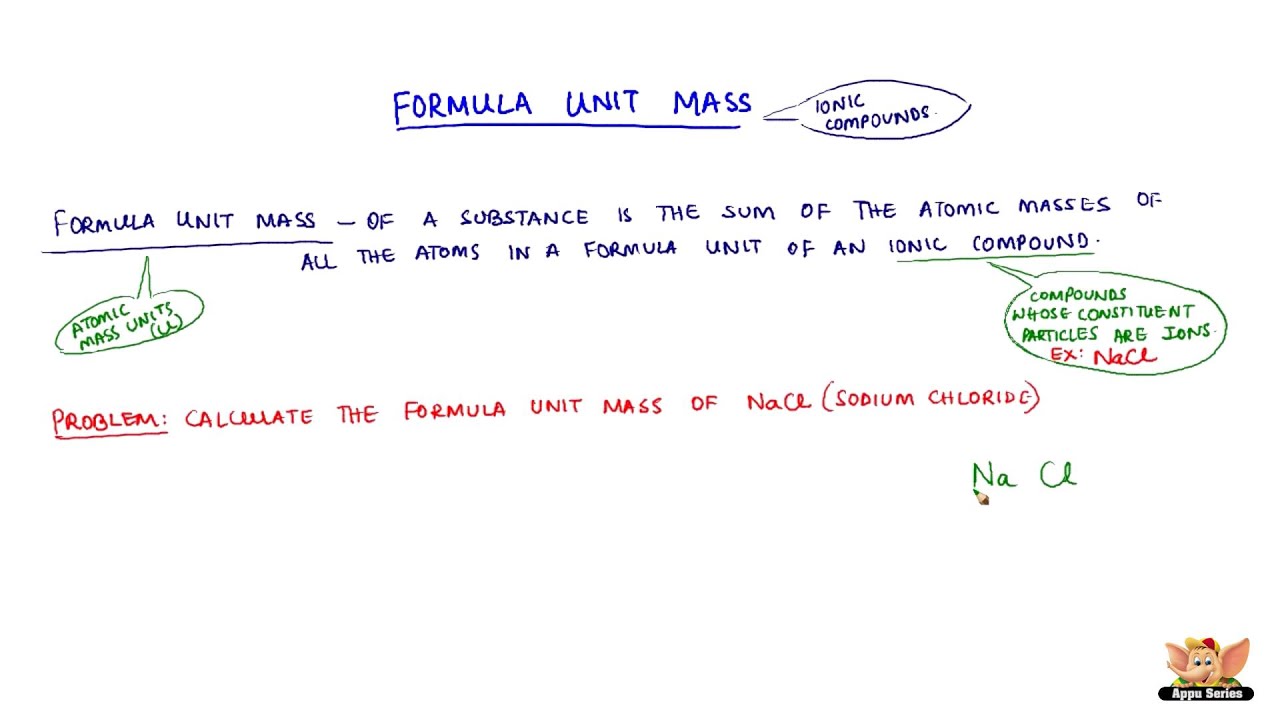 FORMULA UNIT MASS
IONIC
COMPOUNDS.
FORMULA UNIT MASS – OF A SUBSTANCE IS THE SUM OF THE ATOMIC MASSES OF
ALL THE ATOMS IN A FORMULA UNIT OF AN IONIC COMPOUND.
ATOMIC
MASS UNITS
(u)
COMPOUNDS
WHOSE CONSTITUENT
PARTICLES ARE IONS.
EX: NaCl
PROBLEM: CALCULATE THE FORMULA UNIT MASS OF NaCl (SODIUM CHLORIDE)
Na Cl
Appu Series